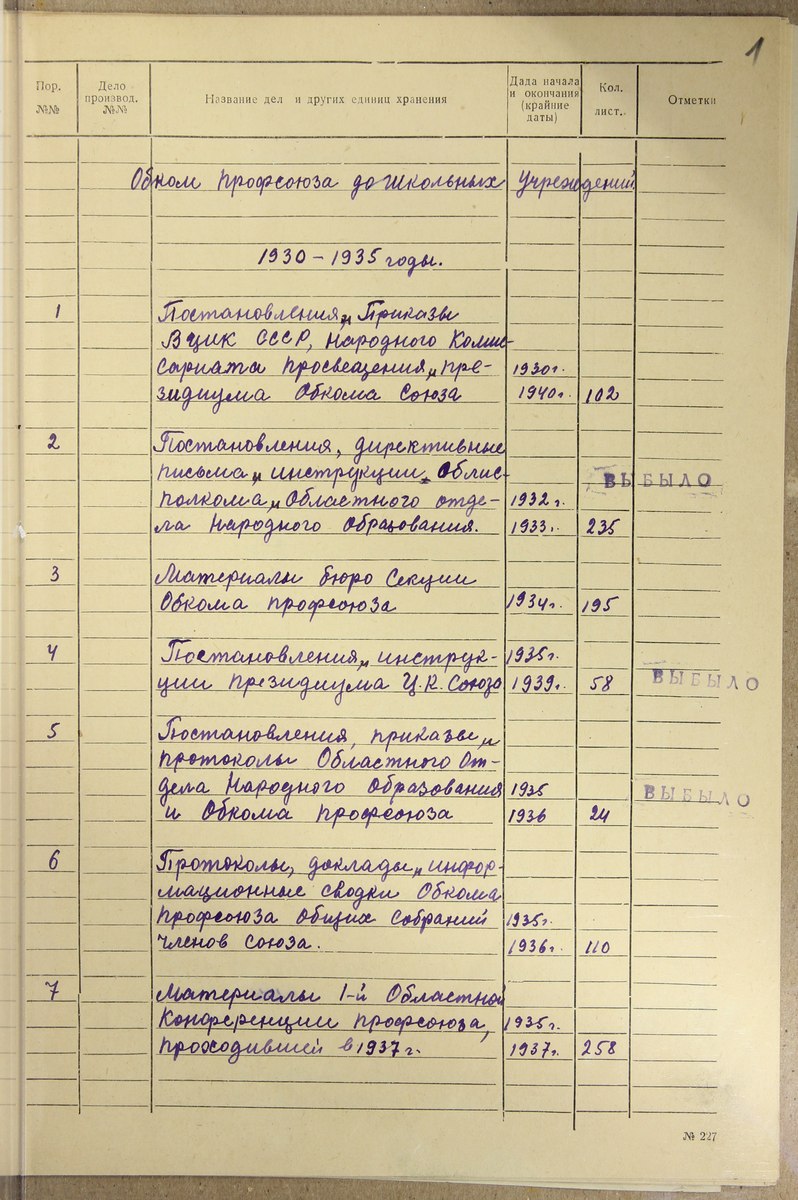 1
Пор.
№№
Дело
производ.
№№
Название дел и других единиц хранения
Дада начала
и окончания
(крайние
даты)
Кол.
лист.
Отметки
Обком профсоюза дошкольных учреждений
1930 – 1935 годы.
1
Постановления, приказы
ВЦИК СССР, Народного Комис-
сариата просвещения, пре-
1930г.
зидиума Обкома Союза
1940г.
102
2
Постановления, директивные
письма, инструкции, Облис-
ВЫБЫЛО
полкома, Областного отде-
1932г.
ла Народного Образования.
1933г.
235
3
Материалы бюро Секции
Обкома профсоюза
1934г.
195
4
Постановления, инструк-
1935г.
ции президиума Ц.К. Союза
1939г.
58
ВЫБЫЛО
5
Постановления, приказы,
протоколы Областного От-
дела Народного Образования
1935
ВЫБЫЛО
и Обкома профсоюза
1936
24
6
Протоколы, доклады, инфор-
мационные сводки Обкома
профсоюза общих собраний
1935г.
членов союза.
1936г.
110
7
Материалы 1-й Областной
Конференции профсоюза,
1935г.
проходившей в 1937г.
1937г.
258
№ 227